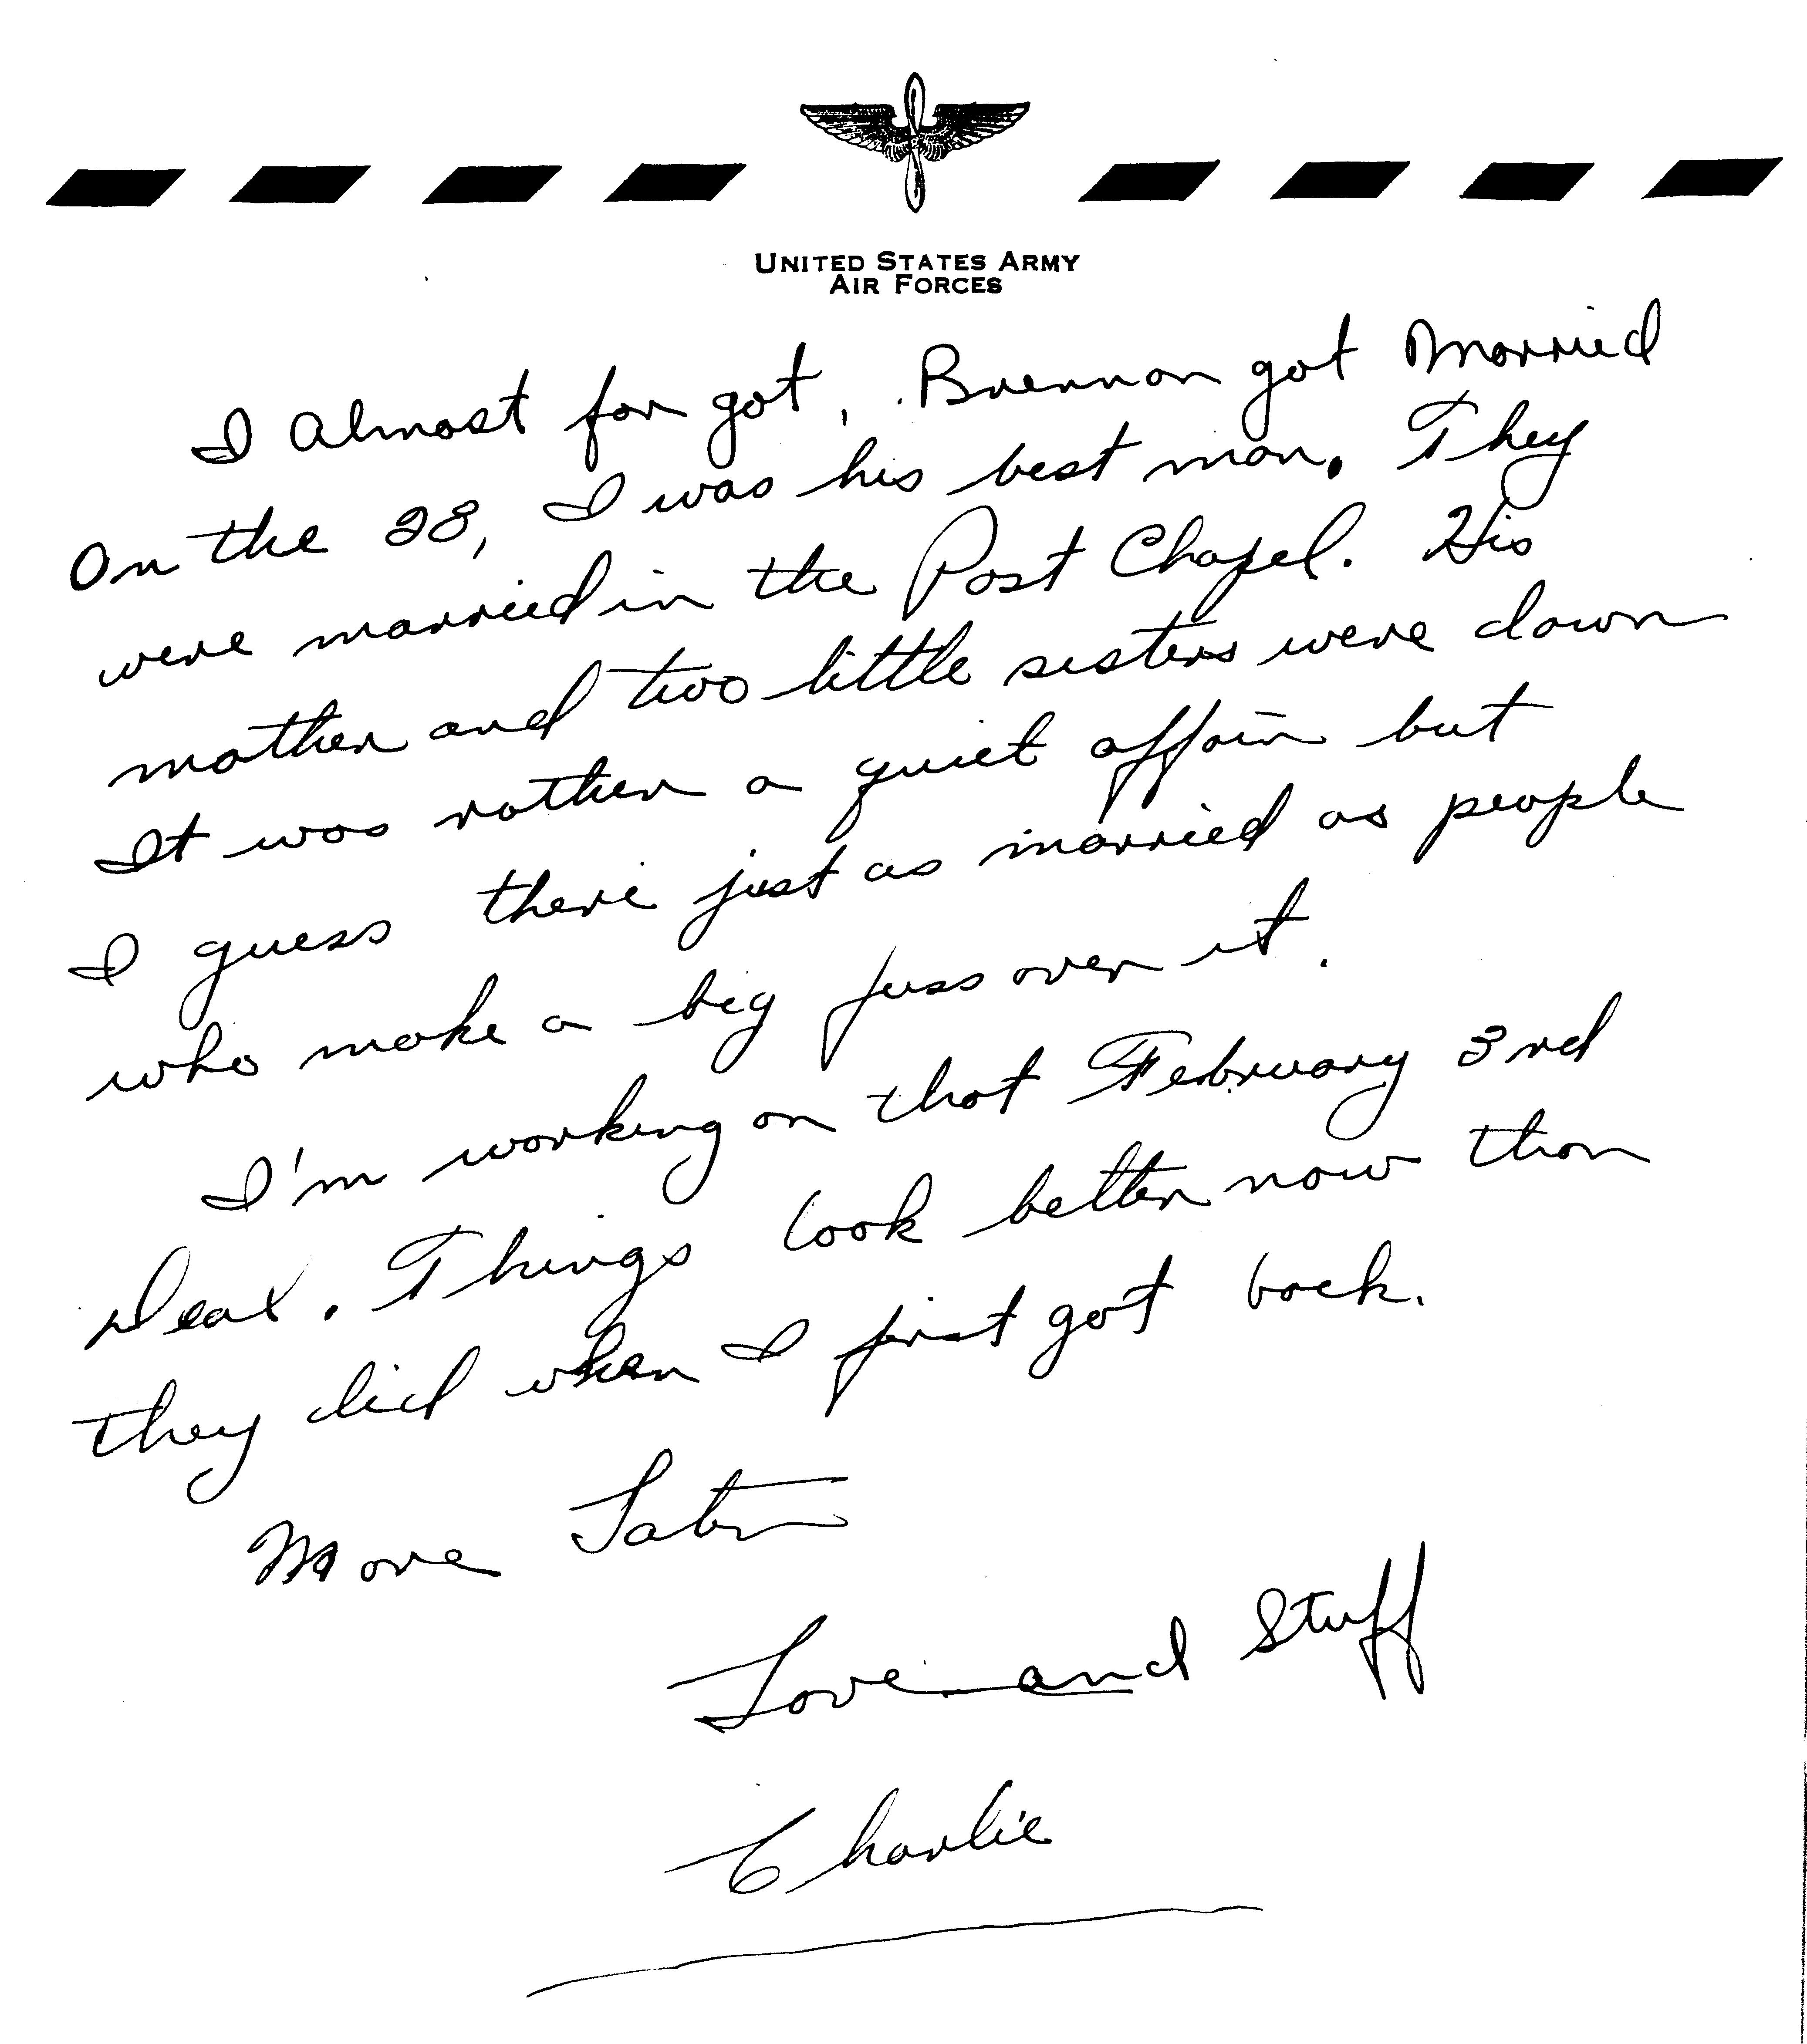 UNITED STATES ARMY
AIR FORCES
I Almost for got, Brennan got Married
On the 28, I was his best man. They
were married in the Post Chapel. His
mother and two little sisters were down
It was rather a quiet affair but
I guess there just as married as people
who make a big fuss over it.
I'm working on that February 3rd
Deal. Things look better now than
they did when I first got back.
More Later
Love and Stuff
Charlie